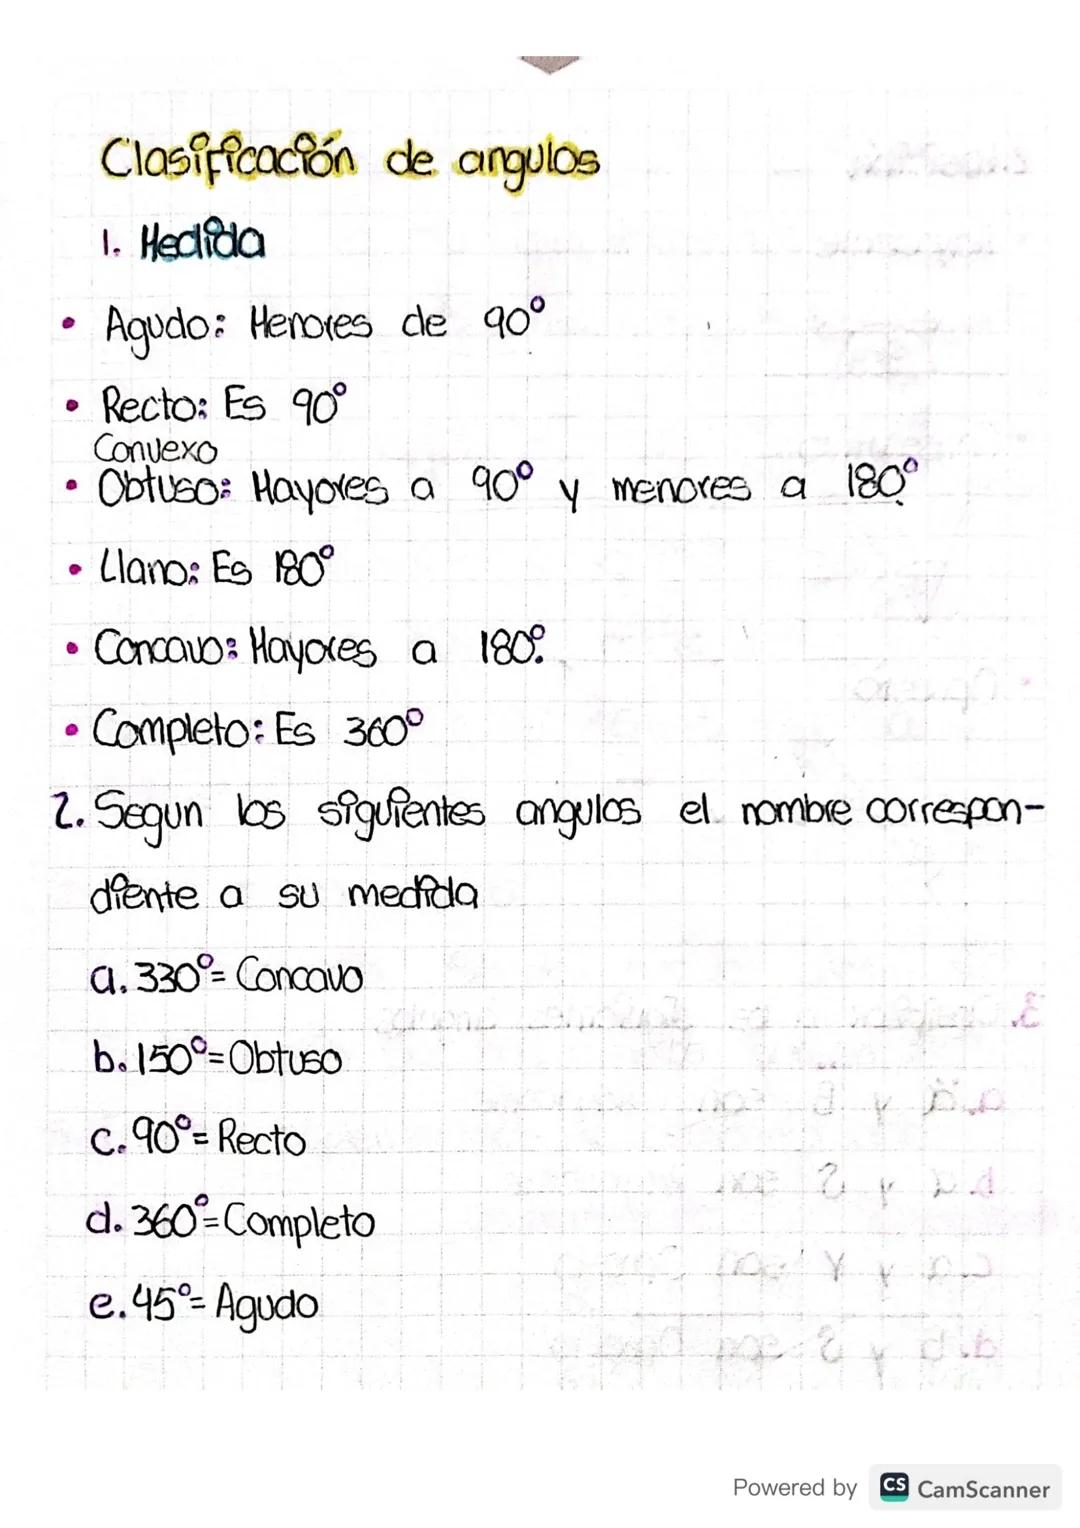 Clasificación de angulos
1. Medida
• Agudo: Menores de 90°
• Recto: Es 90°
Convexo
• Obtuso: Mayores a 90° y menores a 180°
• Llano: Es 180°
• Concavo: Mayores a 180°.
• Completo: Es 360°
2. Segun los siguientes angulos el nombre correspon-
diente a su medida
a. 330°= Concavo
b. 150°= Obtuso
c. 90°= Recto
d. 360°= Completo
e. 45°= Agudo
Powered by CS CamScanner